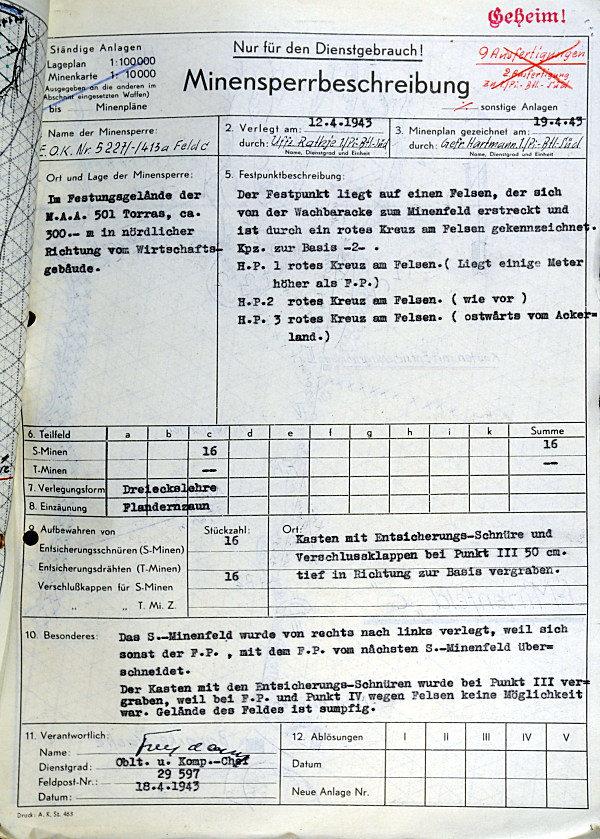 Geheim!
Ständige Anlagen
Lageplan 1:100000
Minenkarte 1: 10000
Ausgegeben an die anderen im
Abschnitt eingesetzten Waffen)
bis Minenpläne
Nur für den Dienstgebrauch!
Minensperrbeschreibung
9 Ausfertigungen
2. Ausfertigung
./. sonstige Anlagen
Name der Minensperre:
E.O.K. Nr. 5227/-/413a Feld c
2. Verlegt am: 12.4.1943
durch: Uffz. Ratkje 1/Pi-Btl-Süd
Name, Dienstgrad und Einheit
19.4.43
3. Minenplan gezeichnet am:
durch: Gefr. Hartmann. 1/Pi-Btl-Süd
Name, Dienstgrad und Einheit
Ort und Lage der Minensperre:
Im Festungsgelände der
M.A.A. 501 Torras, ca.
300.-- m in nördlicher
Richtung vom Wirtschafts-
gebäude.
5. Festpunktbeschreibung:
Der Festpunkt liegt auf einen Felsen, der sich
von der Wachbaracke zum Minenfeld erstreckt und
ist durch ein rotes Kreuz am Felsen gekennzeichnet.
Kpz. zur Basis -2- .
H.P. 1 rotes Kreuz am Felsen.( Liegt einige Meter
höher als F.P.)
H.P.2 rotes Kreuz am Felsen. ( wie vor )
H.P. 3 rotes Kreuz am Felsen. ( ostwärts vom Acker=
land.)
6. Teilfeld a b c d e f g h i k Summe
S-Minen 16 16
T-Minen -- --
7. Verlegungsform Dreieckslehre
8. Einzäunung Flandernzaun
9. Aufbewahren von Stückzahl: Ort:
Entsicherungsschnüren (S-Minen) 16
Entsicherungsdrähten (T-Minen)
Verschlußkappen für S-Minen 16
" " T. Mi. Z.
Kasten mit Entsicherungs-Schnüre und
Verschlussklappen bei Punkt III 50 cm.
tief in Richtung zur Basis vergraben.
10. Besonderes: Das S.-Minenfeld wurde von rechts nach links verlegt, weil sich
sonst der F.P. , mit dem F.P. vom nächsten S.-Minenfeld über=
schneidet.
Der Kasten mit den Entsicherungs-Schnüren wurde bei Punkt III ver=
graben, weil bei F.P. und Punkt IV wegen Felsen keine Möglichkeit
war. Gelände des Feldes ist sumpfig.
11. Verantwortlich:
Name:
Dienstgrad: Oblt. u. Komp.-Chef
Feldpost-Nr.: 29 597
Datum: 18.4.1943
12. Ablösungen I II III IV V
Datum
Neue Anlage Nr.
Druck: A. K. St. 463